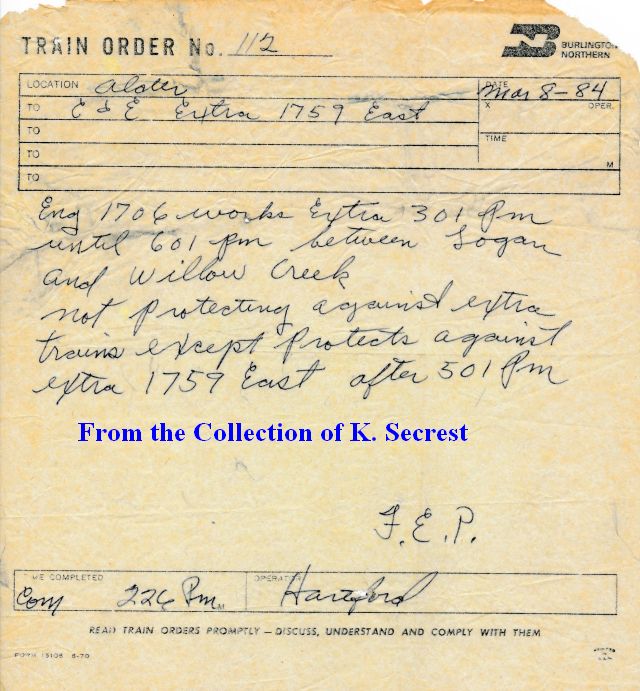 TRAIN ORDER No. 112
BURLINGTON
NORTHERN
LOCATION Alder
DATE Mar 8-84
TO C & E Extra 1759 East
X OPER.
TO
TIME
TO
M
TO
Eng 1706 works Extra 301 Pm
until 601 pm between Logan
and Willow Creek
not protecting against extra
trains except Protects against
extra 1759 East after 501 Pm
From the Collection of K. Secrest
F.E.P.
ME COMPLETED
OPERATOR
Com 226 Pm M Hartford
READ TRAIN ORDERS PROMPTLY — DISCUSS, UNDERSTAND AND COMPLY WITH THEM
FORM 15108 8-70